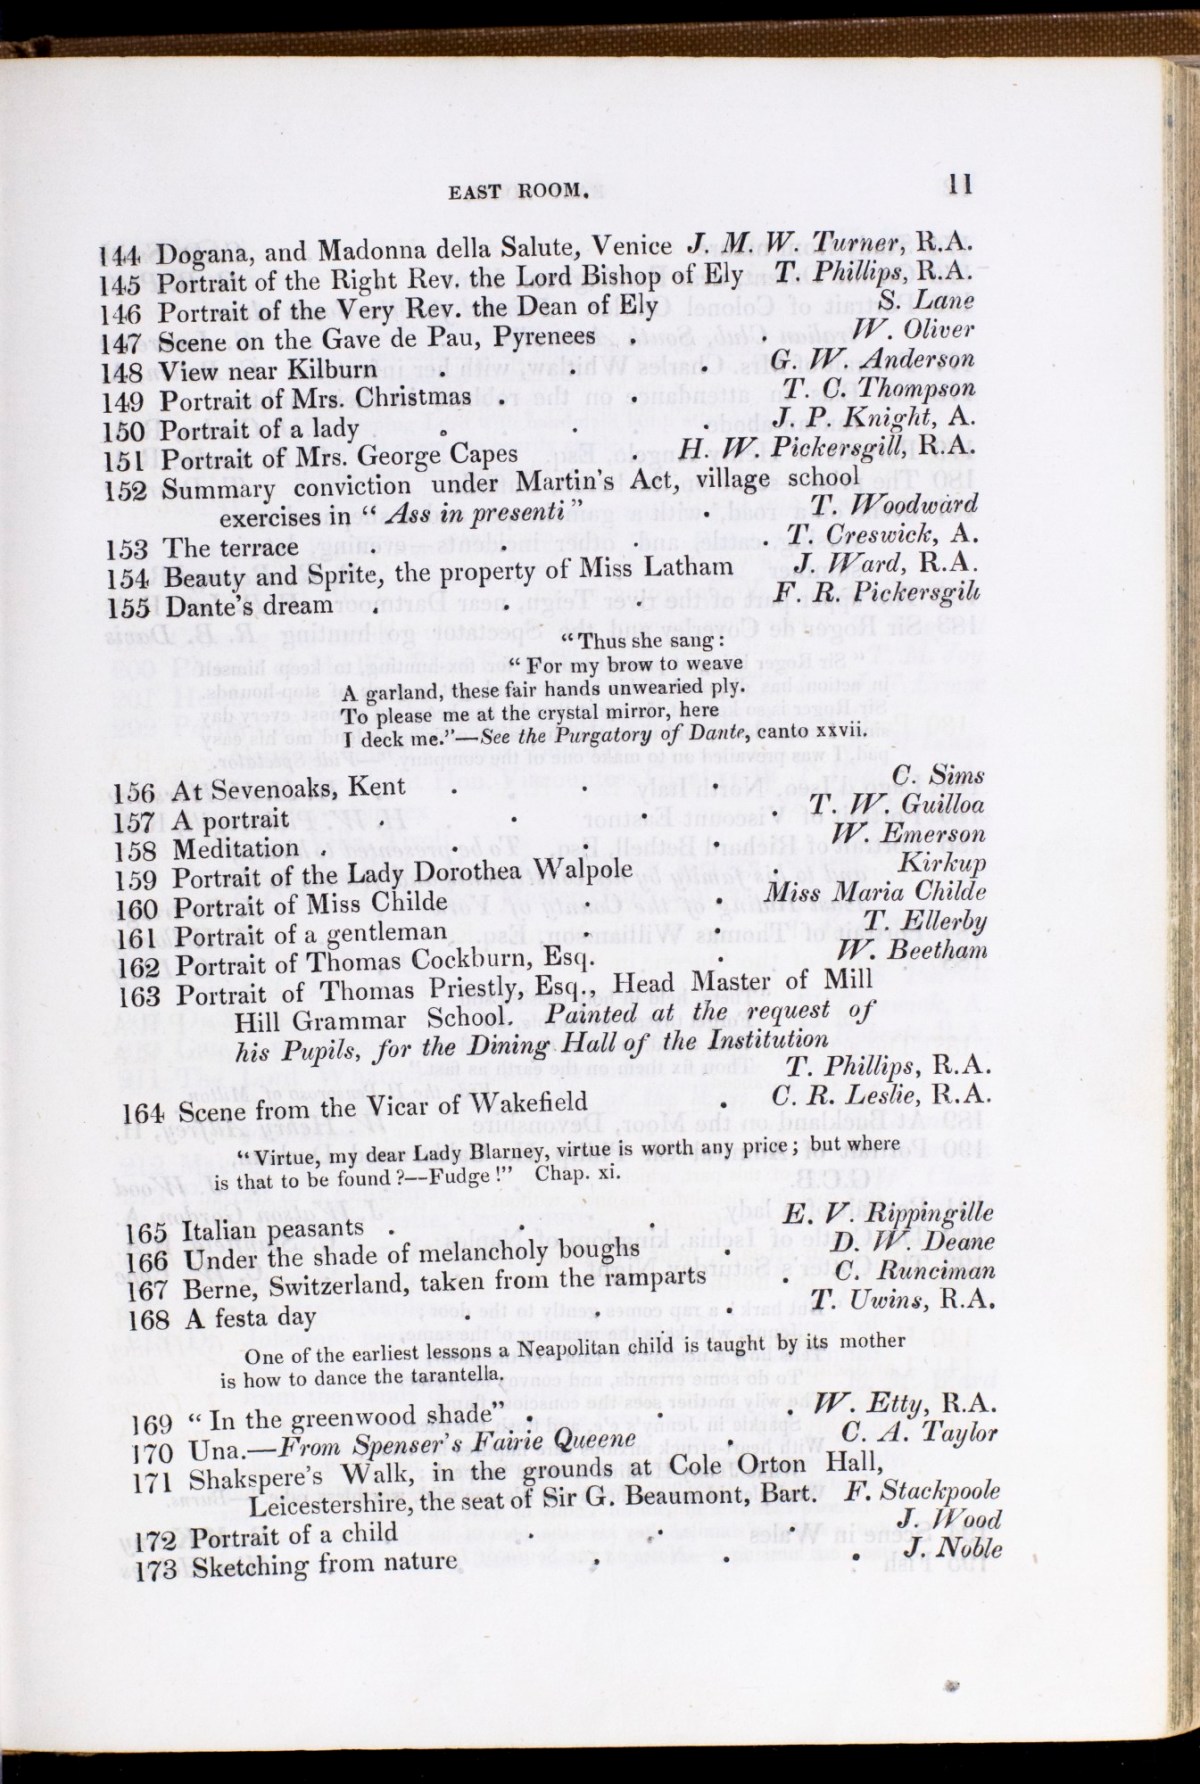 EAST ROOM. 11
144 Dogana, and Madonna della Salute, Venice J. M. W. Turner, R.A.
145 Portrait of the Right Rev. the Lord Bishop of Ely T. Phillips, R.A.
146 Portrait of the Very Rev. the Dean of Ely S. Lane
147 Scene on the Gave de Pau, Pyrenees . . W. Oliver
148 View near Kilburn . . . G. W. Anderson
149 Portrait of Mrs. Christmas . . T. C. Thompson
150 Portrait of a lady . . . J. P. Knight, A.
151 Portrait of Mrs. George Capes . H. W. Pickersgill, R.A.
152 Summary conviction under Martin's Act, village school
exercises in “ Ass in presenti” . T. Woodward
153 The terrace . . . . T. Creswick, A.
154 Beauty and Sprite, the property of Miss Latham J. Ward, R.A.
155 Dante's dream . . . F. R. Pickersgill
“Thus she sang:
“ For my brow to weave
A garland, these fair hands unwearied ply.
To please me at the crystal mirror, here
I deck me.”—See the Purgatory of Dante, canto xxvii.
156 At Sevenoaks, Kent . . . C. Sims
157 A portrait . . . . T. W. Guilloa
158 Meditation . . . . W. Emerson
159 Portrait of the Lady Dorothea Walpole . Kirkup
160 Portrait of Miss Childe . . Miss Maria Childe
161 Portrait of a gentleman . . T. Ellerby
162 Portrait of Thomas Cockburn, Esq. . W. Beetham
163 Portrait of Thomas Priestly, Esq., Head Master of Mill
Hill Grammar School. Painted at the request of
his Pupils, for the Dining Hall of the Institution
T. Phillips, R.A.
164 Scene from the Vicar of Wakefield . C. R. Leslie, R.A.
“Virtue, my dear Lady Blarney, virtue is worth any price; but where
is that to be found?—Fudge!” Chap. xi.
165 Italian peasants . . . E. V. Rippingille
166 Under the shade of melancholy boughs . D. W. Deane
167 Berne, Switzerland, taken from the ramparts . C. Runciman
168 A festa day . . . T. Uwins, R.A.
One of the earliest lessons a Neapolitan child is taught by its mother
is how to dance the tarantella.
169 “ In the greenwood shade” . . . W. Etty, R.A.
170 Una.—From Spenser's Fairie Queene C. A. Taylor
171 Shakspere's Walk, in the grounds at Cole Orton Hall,
Leicestershire, the seat of Sir G. Beaumont, Bart. F. Stackpoole
172 Portrait of a child . . . J. Wood
173 Sketching from nature . . . J. Noble